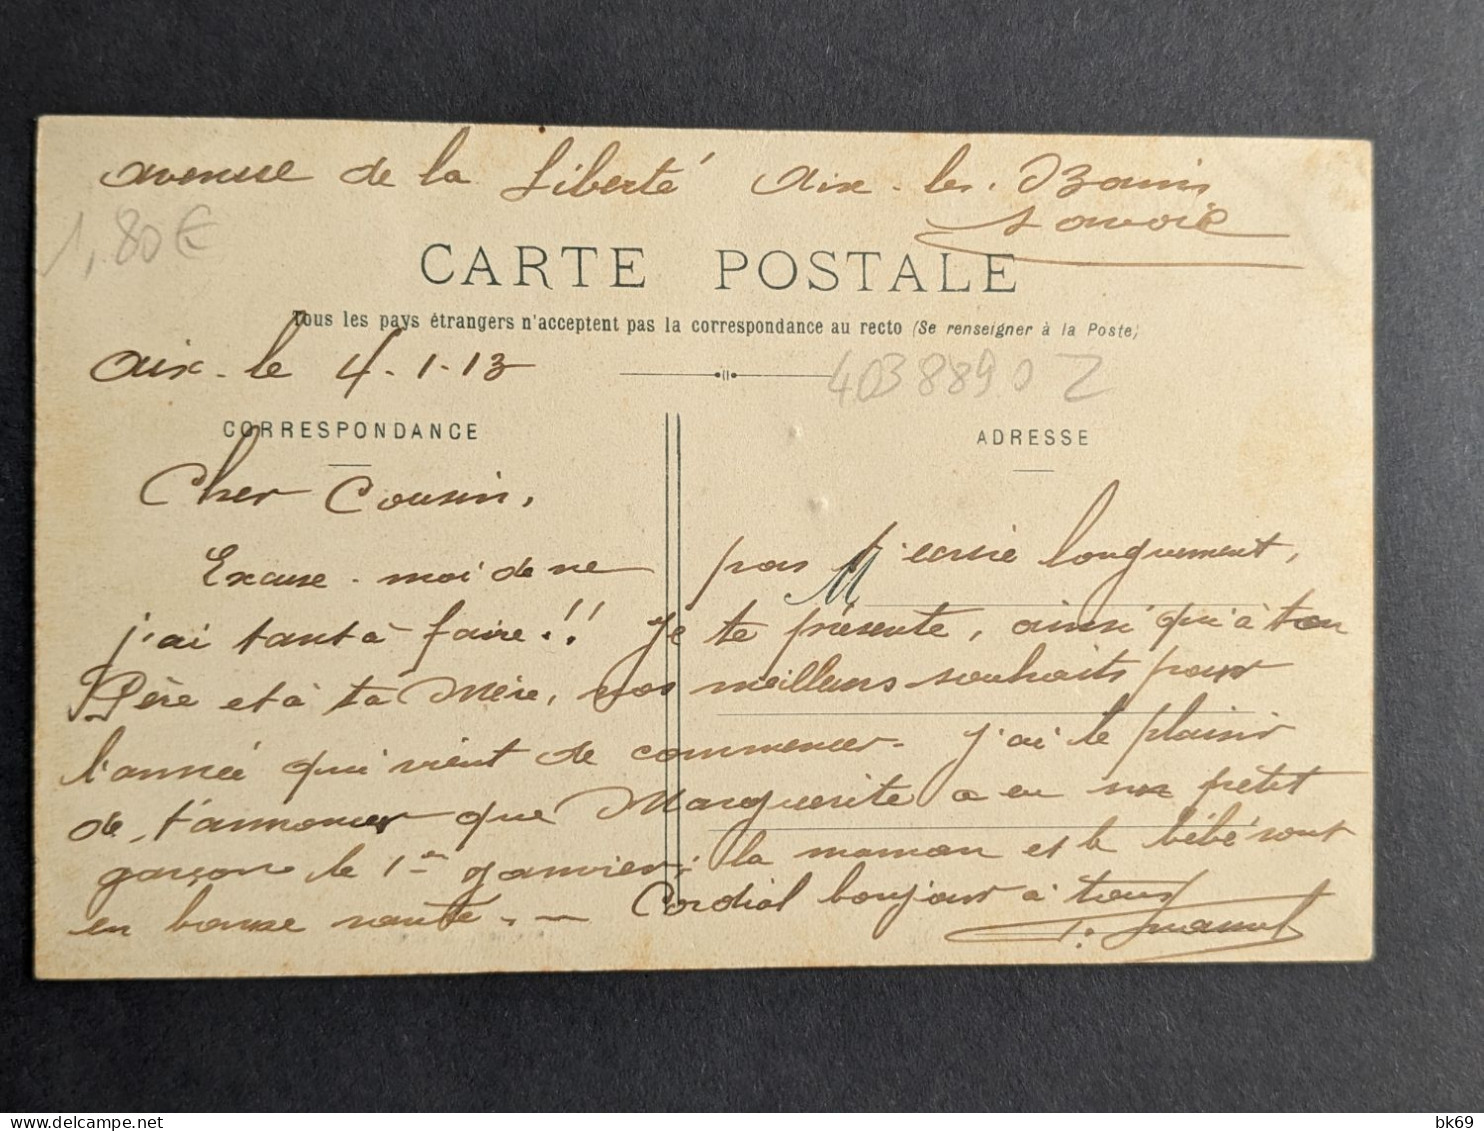 avenue de la Liberté Aix-les-Bains
Savoie
1,80€
CARTE POSTALE
Tous les pays étrangers n'acceptent pas la correspondance au recto (Se renseigner à la Poste)
Aix-le 4-1-13
4038890 Z
CORRESPONDANCE
ADRESSE
Cher Cousin,
Excuse-moi de ne pas t'écrire longuement,
M
j'ai tant à faire!! Je te présente, ainsi qu'à ton
Père et à ta Mère, nos meilleurs souhaits pour
l'année qui vient de commencer. J'ai le plaisir
de t'annoncer que Marguerite a eu un petit
garçon le 1er Janvier; la maman et le bébé sont
en bonne santé. — Cordial bonjour à tous